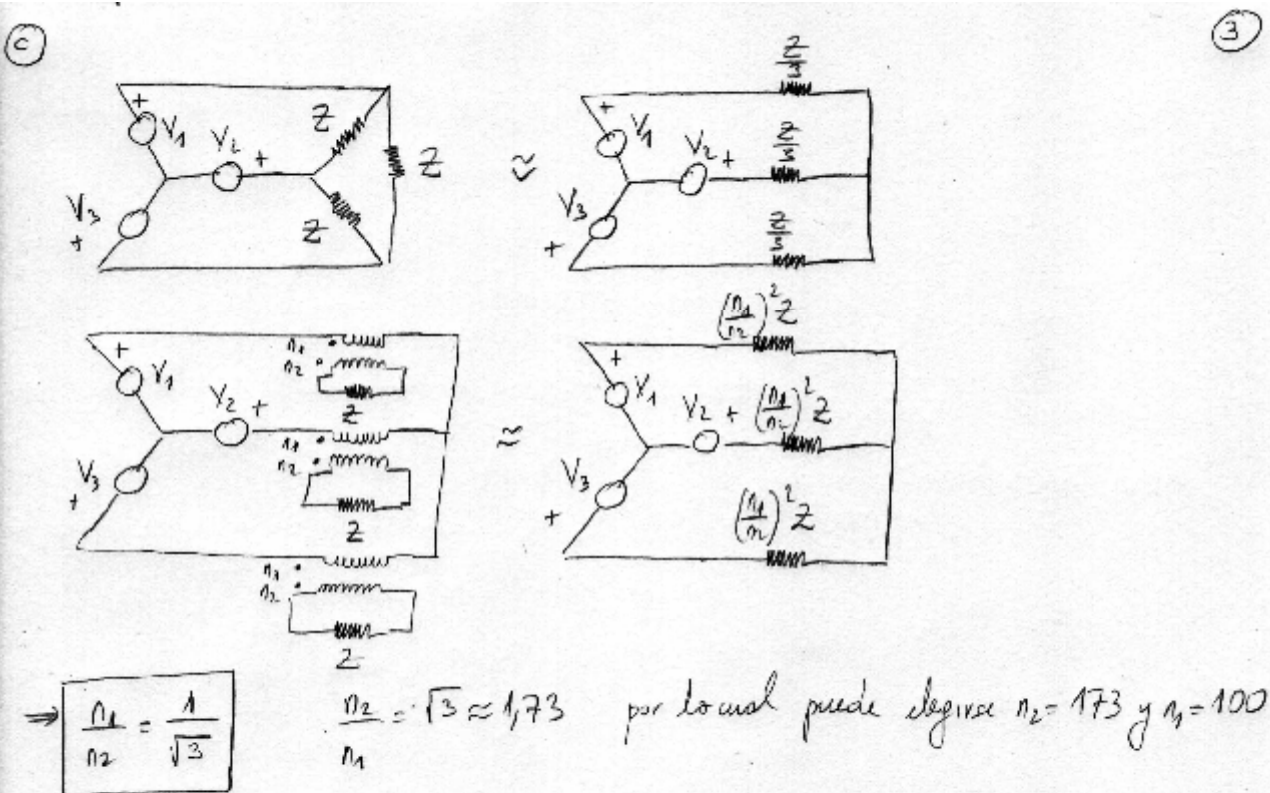 c 3
+ V1 V2 + Z Z Z V3 +
≈
+ V1 V2 + V3 + Z/3 Z/3 Z/3
+ V1 V2 + V3 +
n1 n2 Z
n1 n2 Z
n1 n2 Z
≈
(n1/n2)²Z
+ V1 V2 + (n1/n2)²Z
V3 + (n1/n)²Z
⇒ n1/n2 = 1/√3 n2/n1 = √3 ≈ 1,73 por lo cual puede elegirse n2 = 173 y n1 = 100